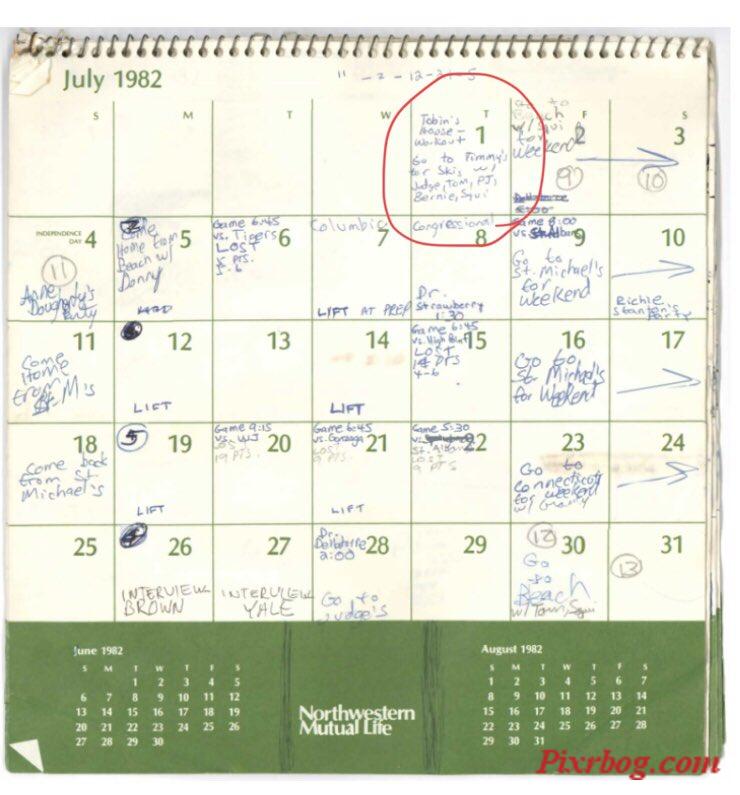 July 1982
S M T W T F S
Tobin's
House -
Workout
Go to Timmy's
for Skis w/
Judge, Tom, PJ,
Bernie, Squi
1
Go to
Beach
w/ Squi
for
Weekend
2
9
3
10
INDEPENDENCE
DAY 4
11
Anne
Dougherty's
Party
5
Come
Home from
Beach w/
Donny
Game 6:45
vs. Tigers
LOST
5-6
6
Columbia
7
LIFT AT PREP
Congressional
8
Dr.
Strawberry
1:30
Game 8:00
vs.
9
Go to
St. Michael's
for
Weekend
10
Richie
Stanton's
Party
11
Come
Home
from
St. M's
12
LIFT
13
14
LIFT
Game 6:45
LOST
15
14 PTS
4-6
16
Go to
St. Michael's
for Weekend
17
18
Come back
from St.
Michael's
5
19
LIFT
Game 9:15
vs. WJ
20
LOST
19 PTS.
Game 6:45
vs. Gonzaga
21
LOST
9 PTS.
LIFT
Game 5:30
vs.
22
St. Albans
LOST
9 PTS
23
Go to
Connecticut
for weekend
w/ Granny
24
25
26
INTERVIEW
BROWN
27
INTERVIEW
YALE
Dr.
28
2:00
Go to
Judge's
29
12
30
Go
to
Beach
w/ Tom, Squi
31
13
June 1982
S M T W T F S
1 2 3 4 5
6 7 8 9 10 11 12
13 14 15 16 17 18 19
20 21 22 23 24 25 26
27 28 29 30
Northwestern
Mutual Life
August 1982
S M T W T F S
1 2 3 4 5 6 7
8 9 10 11 12 13 14
15 16 17 18 19 20 21
22 23 24 25 26 27 28
29 30 31
Pixrbog.com